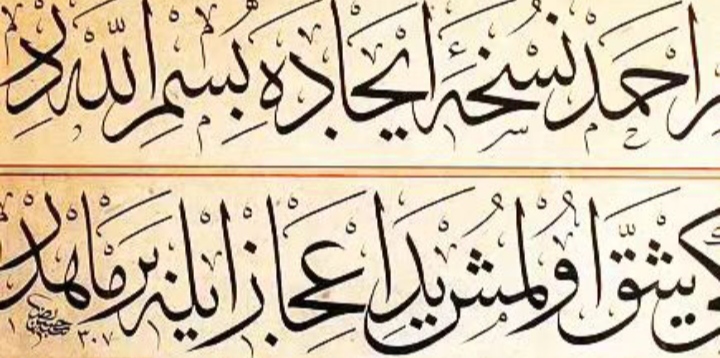 احمد نسخۀ ايجاده بسم الله در
شق اولمش يد اعجاز ايله بر ماهدر
١٣٠٧